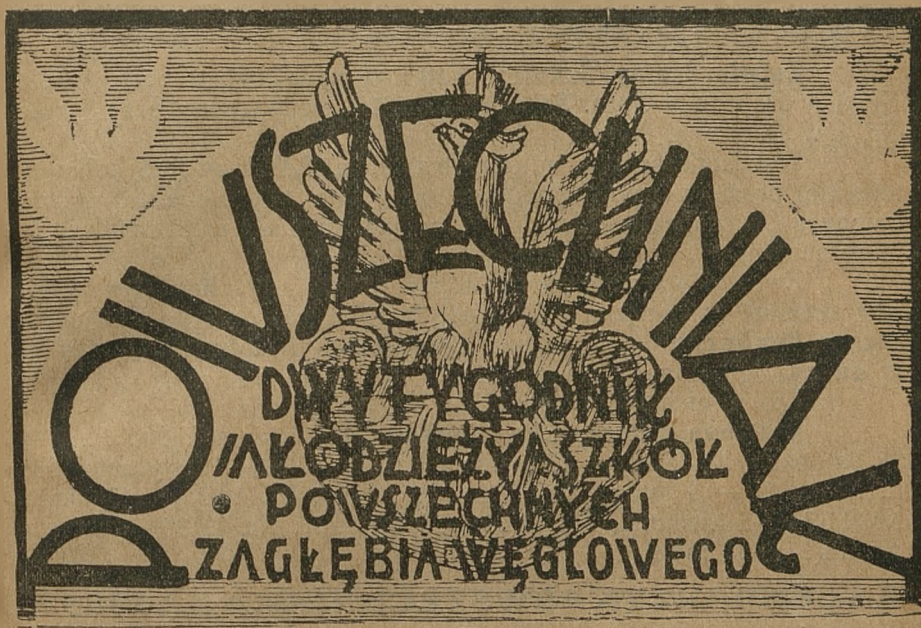 POWSZECHNIAK
DWYTYGODNIK
MŁODZIEŻY SZKÓŁ
• POWSZECHNYCH
ZAGŁĘBIA WĘGLOWEGO